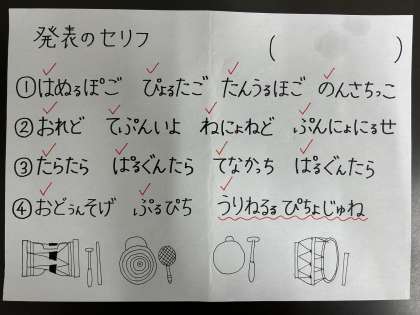 発表のセリフ ( )
①はぬるぽご ぴょるたご たんうるほご のんさちっこ
②おれど てぷんいよ ねにょねど ぷんにょにるせ
③たらたら ぱるぐんたら てなかっち ぱるぐんたら
④おどぅんそげ ぷるぴち うりねるる ぴちょじゅね